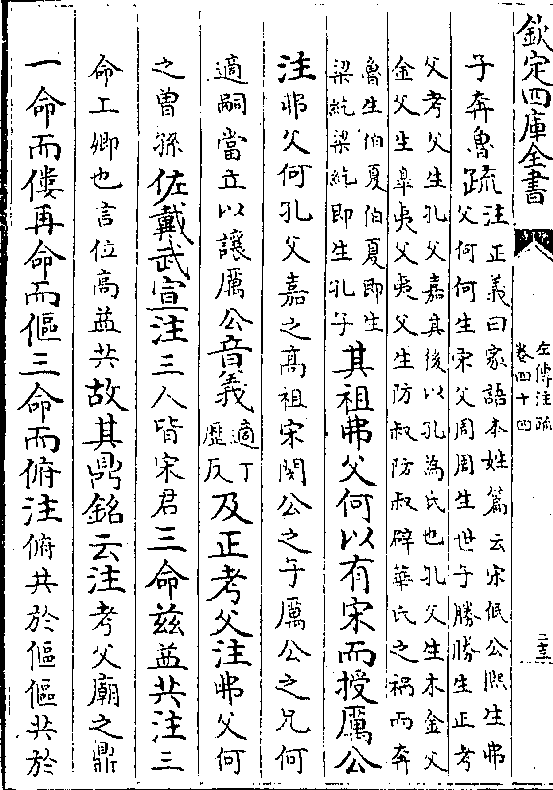 欽定四庫全書
左傳注疏
卷四十四
子奔魯疏注正義曰家語本姓篇云宋湣公熙生弗
父何何生宋父周周生世子勝勝生正考
父考父生孔父嘉其後以孔為氏也孔父生木金父
金父生臯夷父夷父生防叔防叔辟華氏之禍而奔
魯生伯夏伯夏即生
梁紇梁紇即生孔子
其祖弗父何以有宋而授厲公
注弗父何孔父嘉之高祖宋閔公之子厲公之兄何
適嗣當立以讓厲公音義適丁歴反及正考父注弗父何
之曽孫佐戴武宣注三人皆宋君三命兹益共注三
命上卿也言位高益共故其鼎銘云注考父廟之鼎
一命而僂再命而傴三命而俯注俯共於傴傴共於